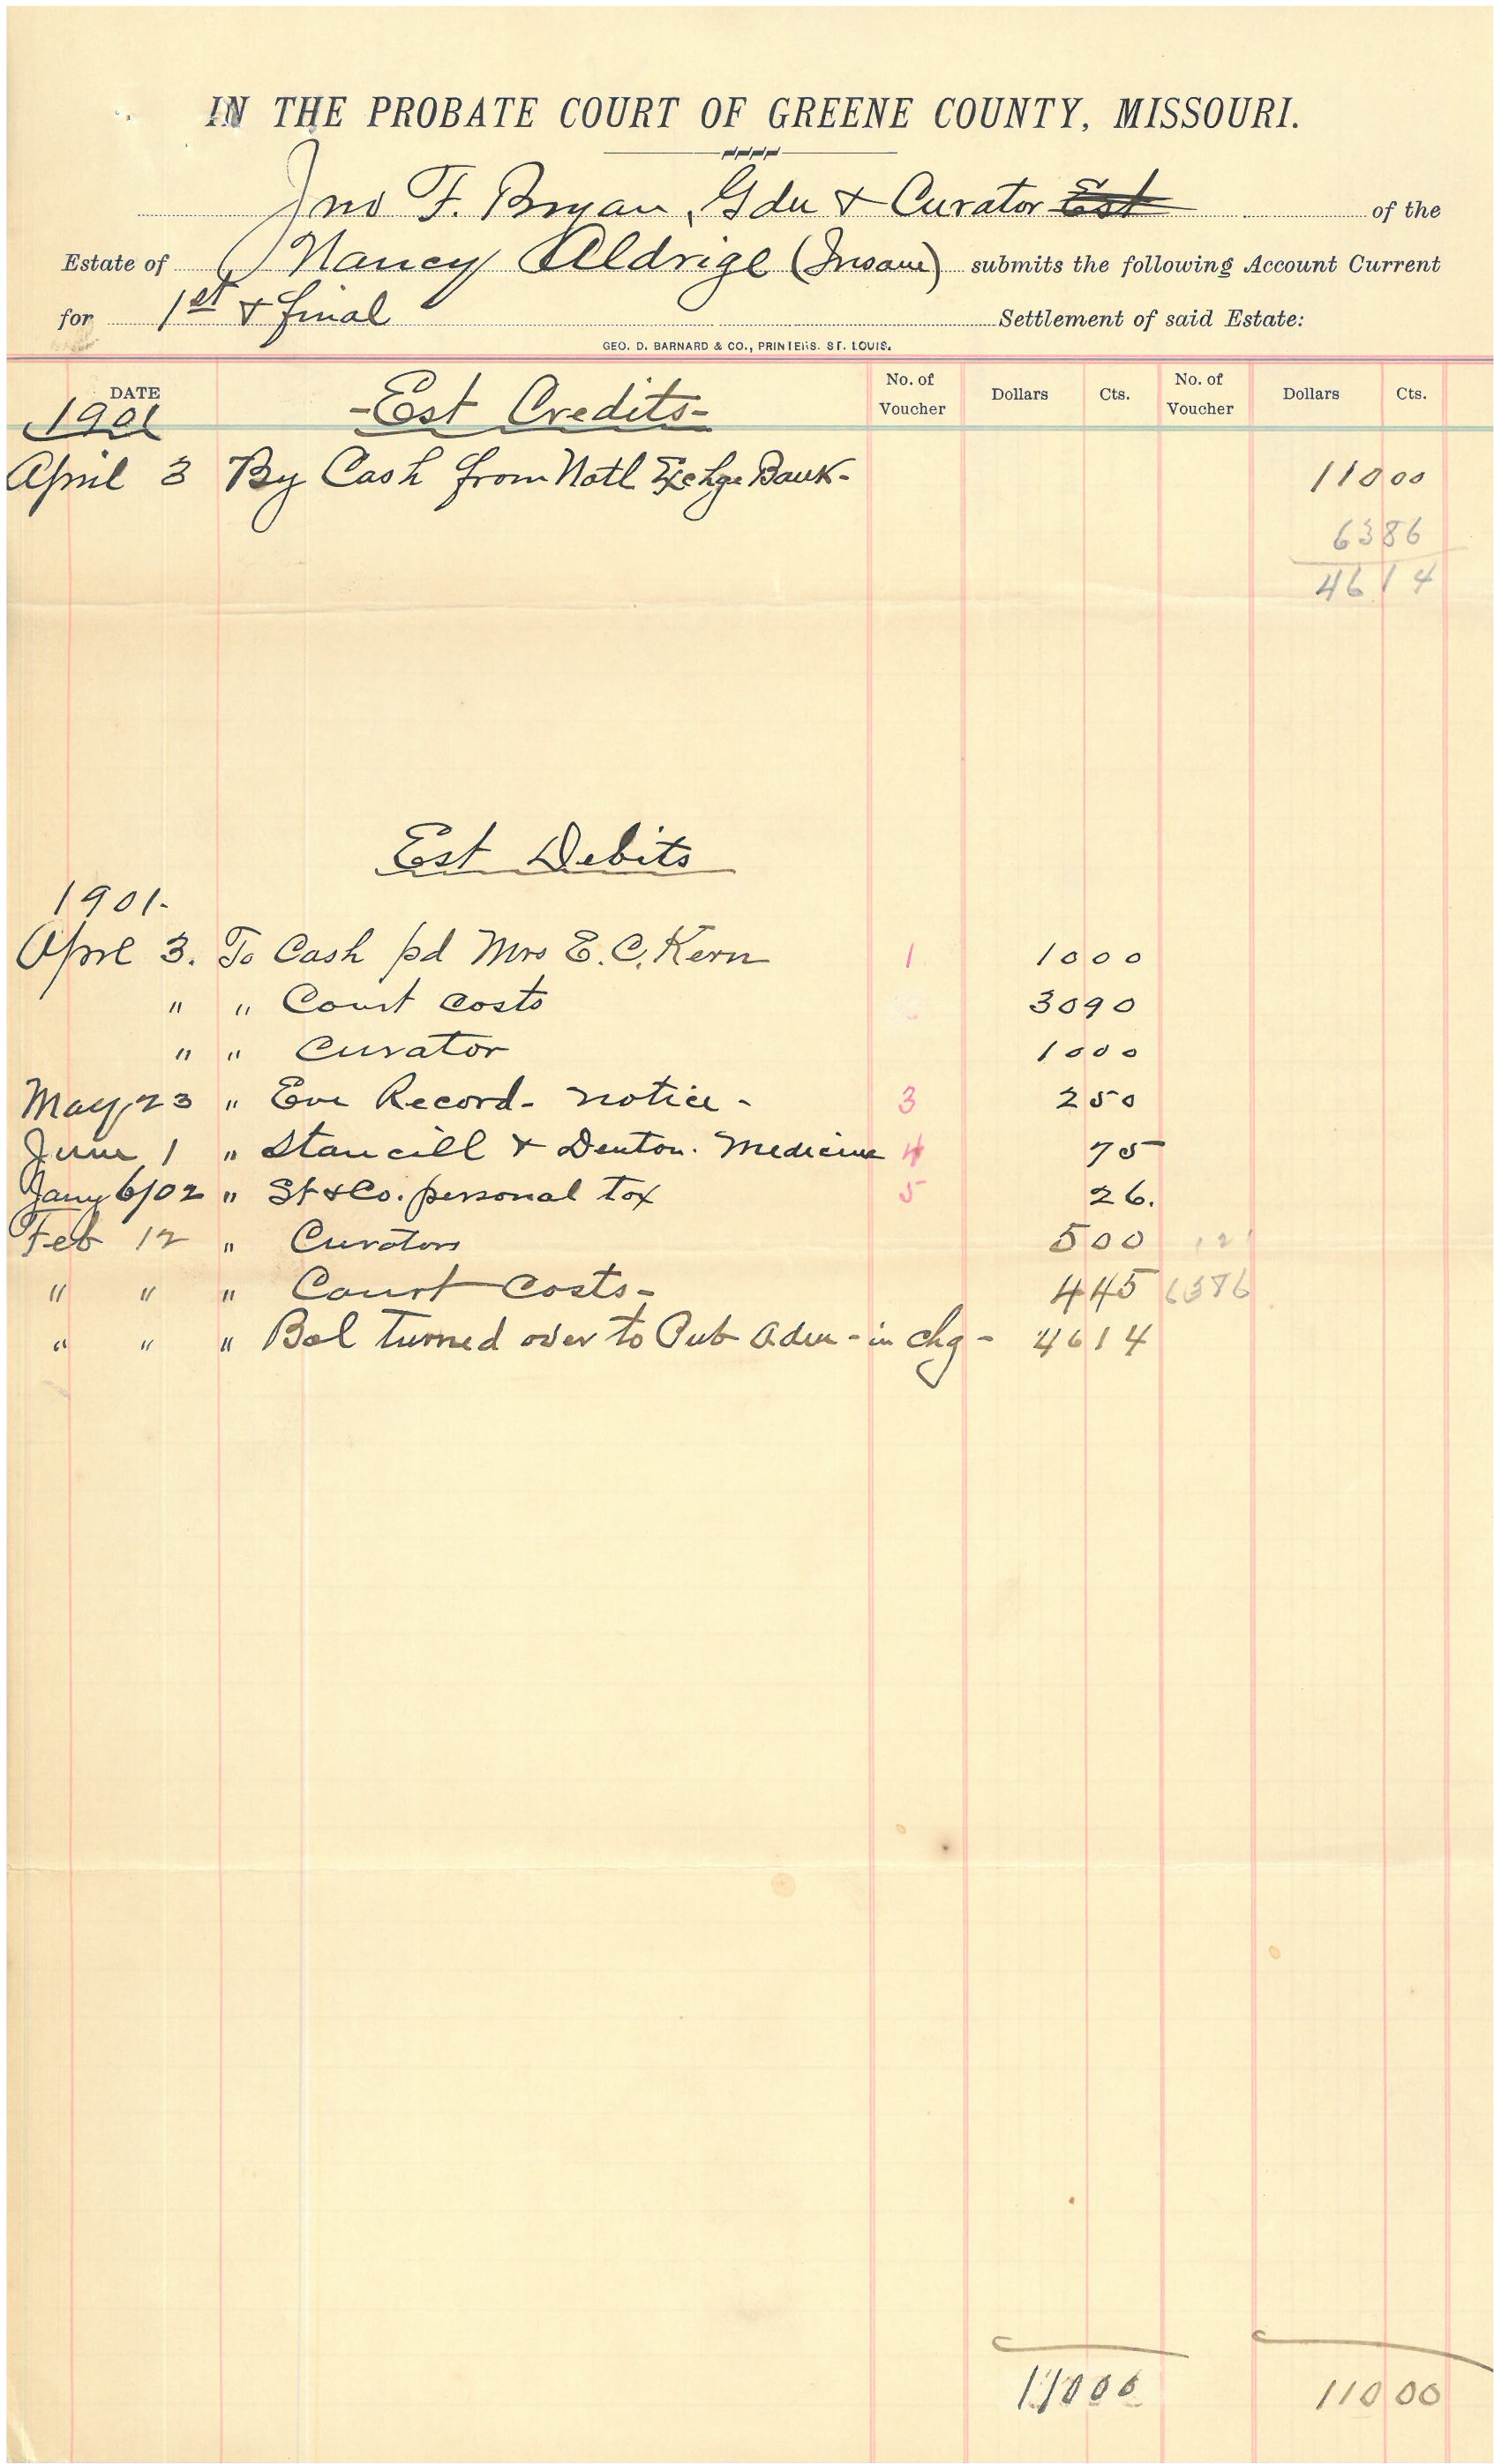 IN THE PROBATE COURT OF GREENE COUNTY, MISSOURI.
Jno F. Bryan, Gdn & Curator Est of the
Estate of Nancy Aldrige (Insane) submits the following Account Current
for 1st & final Settlement of said Estate:
GEO. D. BARNARD & CO., PRINTERS. ST. LOUIS.
DATE No. of Voucher Dollars Cts. No. of Voucher Dollars Cts.
1901 -Est Credits-
April 3 By Cash from Natl Exchge Bank- 110 00
63 86
46 14
Est Debits
1901-
Aprl 3. To Cash pd Mrs E. C. Kern 1 10 00
" " Court Costs 30 90
" " Curator 10 00
May 23 " Eve Record- notice- 3 2 50
June 1 " Stancill & Denton. Medicine 4 75
Jany 6/02 " St & Co. personal tax 5 26.
Feb 12 " Curators 5 00
" " " Court Costs- 4 45 6386
" " " Bal turned over to Pub Adm - in chg - 46 14
110 00 110 00